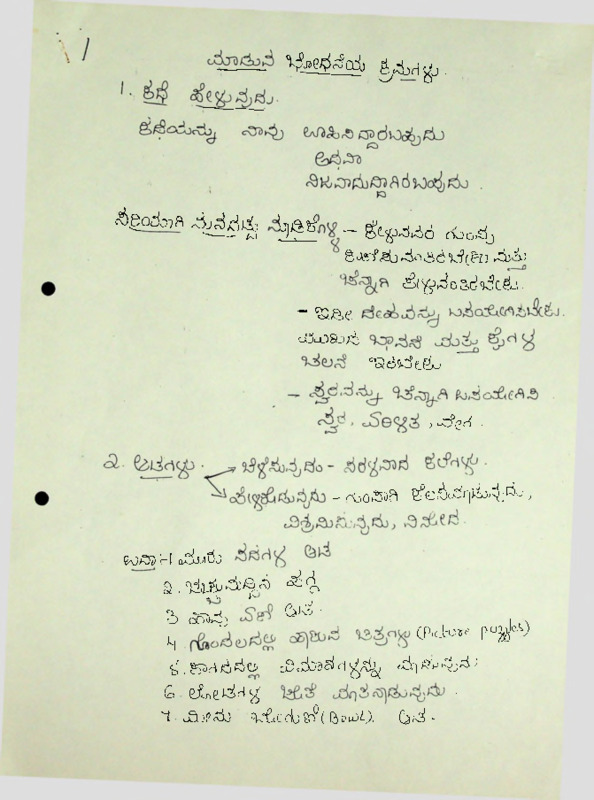 1
ಮಾಡುವ ಭೋಧನೆಯ ಕ್ರಮಗಳು.
1. ಕಥೆ ಹೇಳುವುದು.
ಕಥೆಯನ್ನು ನಾವು ಊಹಿಸಿದ್ದಾರಬಹುದು
ಅಥವಾ
ನಿಜವಾದುದ್ದಾಗಿರಬಹುದು.
ಸರಿಯಾಗಿ ಮನದಟ್ಟು ಮಾಡಿಕೊಳ್ಳಿ - ಕೇಳುವವರ ಗುಂಪು
ಕಾಣಿಸುವಂತಿರಬೇಕು ಮತ್ತು
ಚೆನ್ನಾಗಿ ಕೇಳುವಂತಿರಬೇಕು.
- ಇಡೀ ದೇಹವನ್ನು ಉಪಯೋಗಿಸಬೇಕು.
ಮುಖದ ಭಾವನೆ ಮತ್ತು ಕೈಗಳ
ಚಲನೆ ಇರಬೇಕು
- ಸ್ವರವನ್ನು ಚೆನ್ನಾಗಿ ಉಪಯೋಗಿಸಿ
ಸ್ವರ, ಏರಿಳಿತ, ವೇಗ.
೨. ಆಟಗಳು. ಬೆಳೆಸುವುದು - ಸರಳವಾದ ಕಲೆಗಳು.
ಹೇಳಿಕೊಡುವುದು - ಗುಂಪಾಗಿ ಕೆಲಸಮಾಡುವುದು,
ವಿಶ್ರಮಿಸುವುದು, ವಿನೋದ.
ಉದಾ: 1 ಮೂರು ಪದಗಳ ಆಟ
೨. ಚುಚ್ಚುಮದ್ದಿನ ಹಗ್ಗ
3 ಹಾವು ಏಣಿ ಆಟ.
4. ಗೊಂದಲದಲ್ಲಿ ಹಾಕುವ ಚಿತ್ರಗಳು (Picture puzzles)
5. ಕಾಗದದಲ್ಲಿ ವಿಮಾನಗಳನ್ನು ಮಾಡುವುದು
6. ಲೋಟಗಳ ಜೊತೆ ಮಾತನಾಡುವುದು.
7. ಮೀನು ಬೋಗುಣಿ (Bowl). ಆಟ.